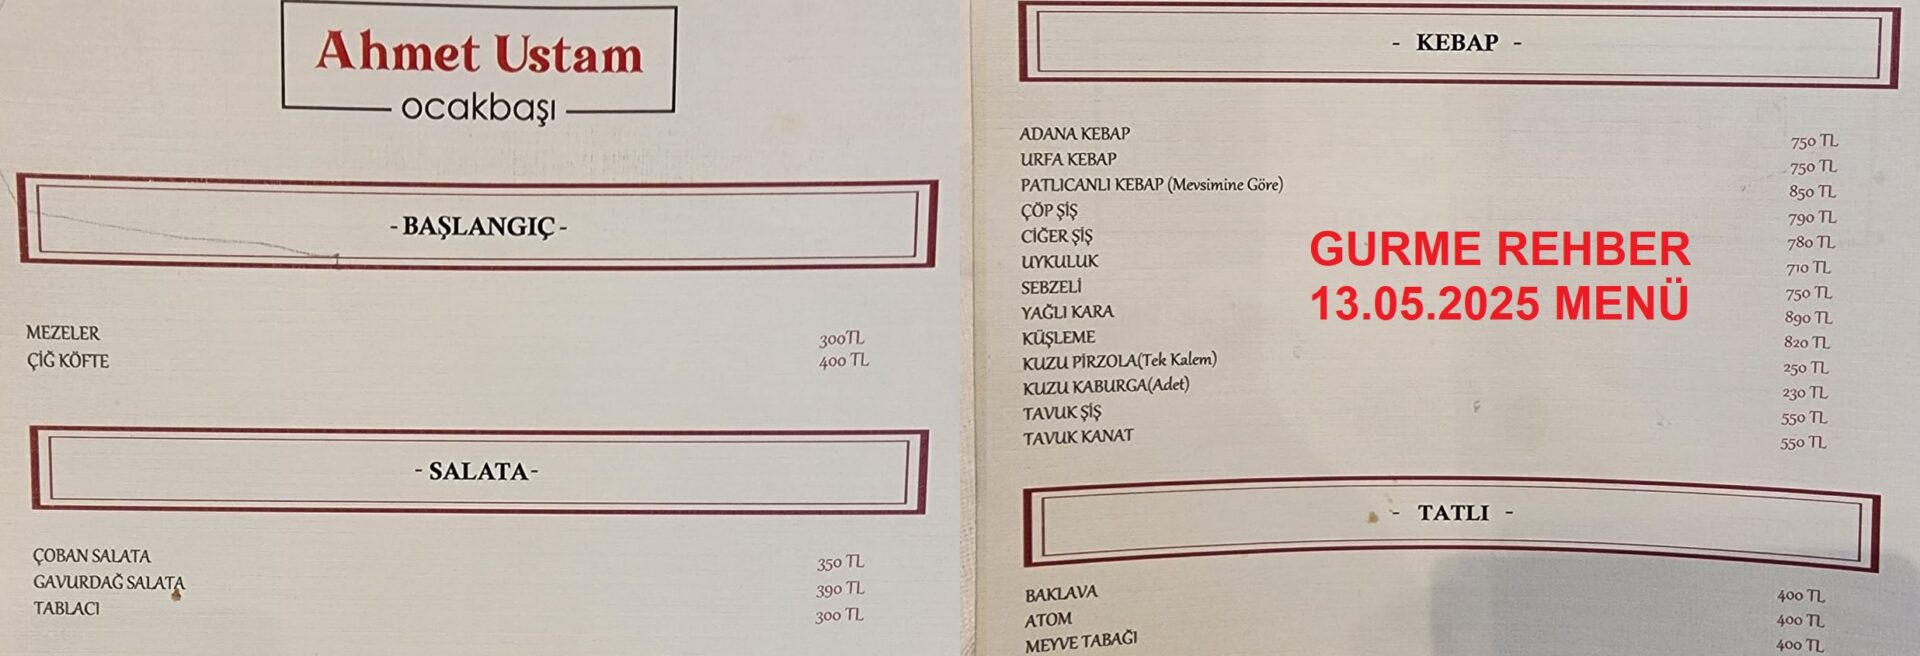 Ahmet Ustam
ocakbaşı
-BAŞLANGIÇ-
MEZELER 300TL
ÇİĞ KÖFTE 400 TL
-SALATA-
ÇOBAN SALATA 350 TL
GAVURDAĞ SALATA 390 TL
TABLACI 300 TL
- KEBAP -
ADANA KEBAP 750 TL
URFA KEBAP 750 TL
PATLICANLI KEBAP (Mevsimine Göre) 850 TL
ÇÖP ŞİŞ 790 TL
CİĞER ŞİŞ 780 TL
UYKULUK 710 TL
SEBZELİ 750 TL
YAĞLI KARA 890 TL
KÜŞLEME 820 TL
KUZU PİRZOLA(Tek Kalem) 250 TL
KUZU KABURGA(Adet) 230 TL
TAVUK ŞİŞ 550 TL
TAVUK KANAT 550 TL
GURME REHBER
13.05.2025 MENÜ
- TATLI -
BAKLAVA 400 TL
ATOM 400 TL
MEYVE TABAĞI 400 TL